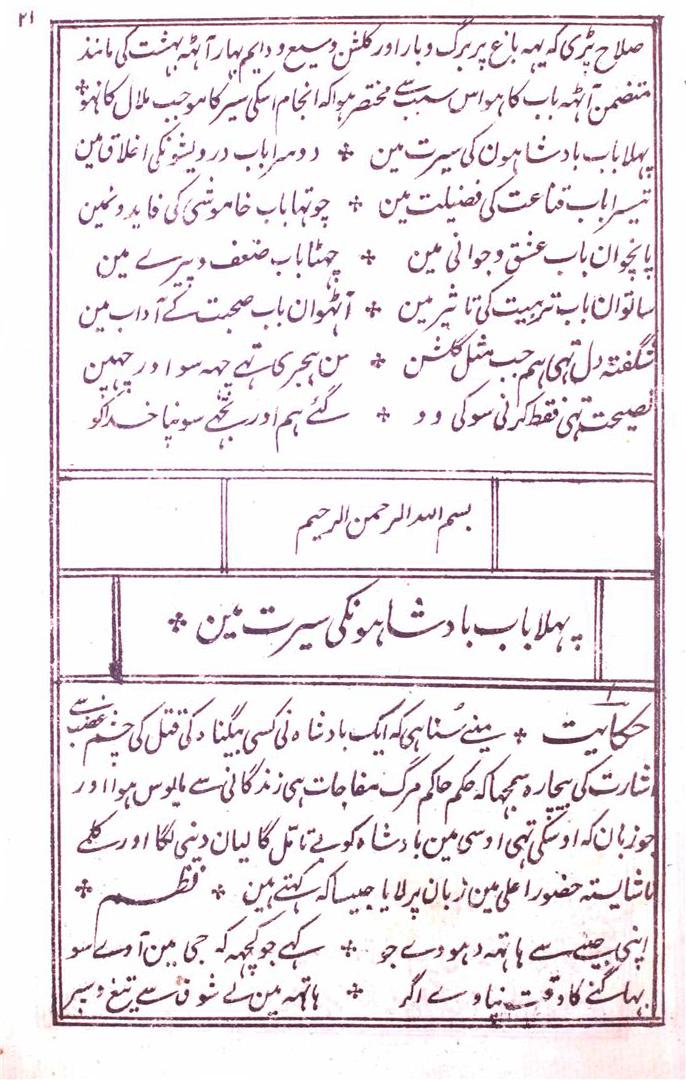 ۲۱
صلاح پڑی کہ یہہ باغ پر برگ وبار اور گلشن وسیع ودایم بہار آٹہہ بہشت کی مانند
متضمن آٹہہ باب کا ہوا اس سبب سے مختصر ہوا کہ انجام اسکی سیر کا موجب ملال کا نہو
پہلا باب بادشاہون کی سیرت مین ✣ دوسرا باب درویشونکی اخلاق مین
تیسرا باب قناعت کی فضیلت مین ✣ چوتہا باب خاموشی کی فایدونمین
پانچوان باب عشق وجوانی مین ✣ چہٹا باب ضعف وپیرے مین
ساتوان باب تربیت کی تاثیر مین ✣ آٹہوان باب صحبت کے آداب مین
شگفتہ دل تہی ہم جب مثل گلشن ✣ سن ہجری تہے چہہ سو اور چہپن
نصیحت تہی فقط کرنی سو کی وو ✣ گئے ہم اور تجہے سونپا خدا کو
بسم اللہ الرحمن الرحیم
پہلا باب بادشاہونکی سیرت مین ✣
حکایت ۱ ✣ مینے سنا ہی کہ ایک بادشاہ نی کسی بیگناہ کی قتل کی چشم غضب سے
اشارت کی بیچارہ سمجہا کہ حکم حاکم مرگ مفاجات ہی زندگانی سے مایوس ہوا اور
جو زبان کہ اوسکی تہی اوسی مین بادشاہ کو بے تامل گالیان دینی لگا اور کلمے
ناشایستہ حضور اعلی مین زبان پر لایا جیسا کہ کہتے ہین ✣ نظم ✣
اپنی جیسے سے ہاتہہ دہووے جو ✣ کہے جو کچہہ کہ جی مین آوے سو
بہاگنے کا وقت نپاوے اگر ✣ ہاتہہ مین لے شوق سے تیغ وسپر